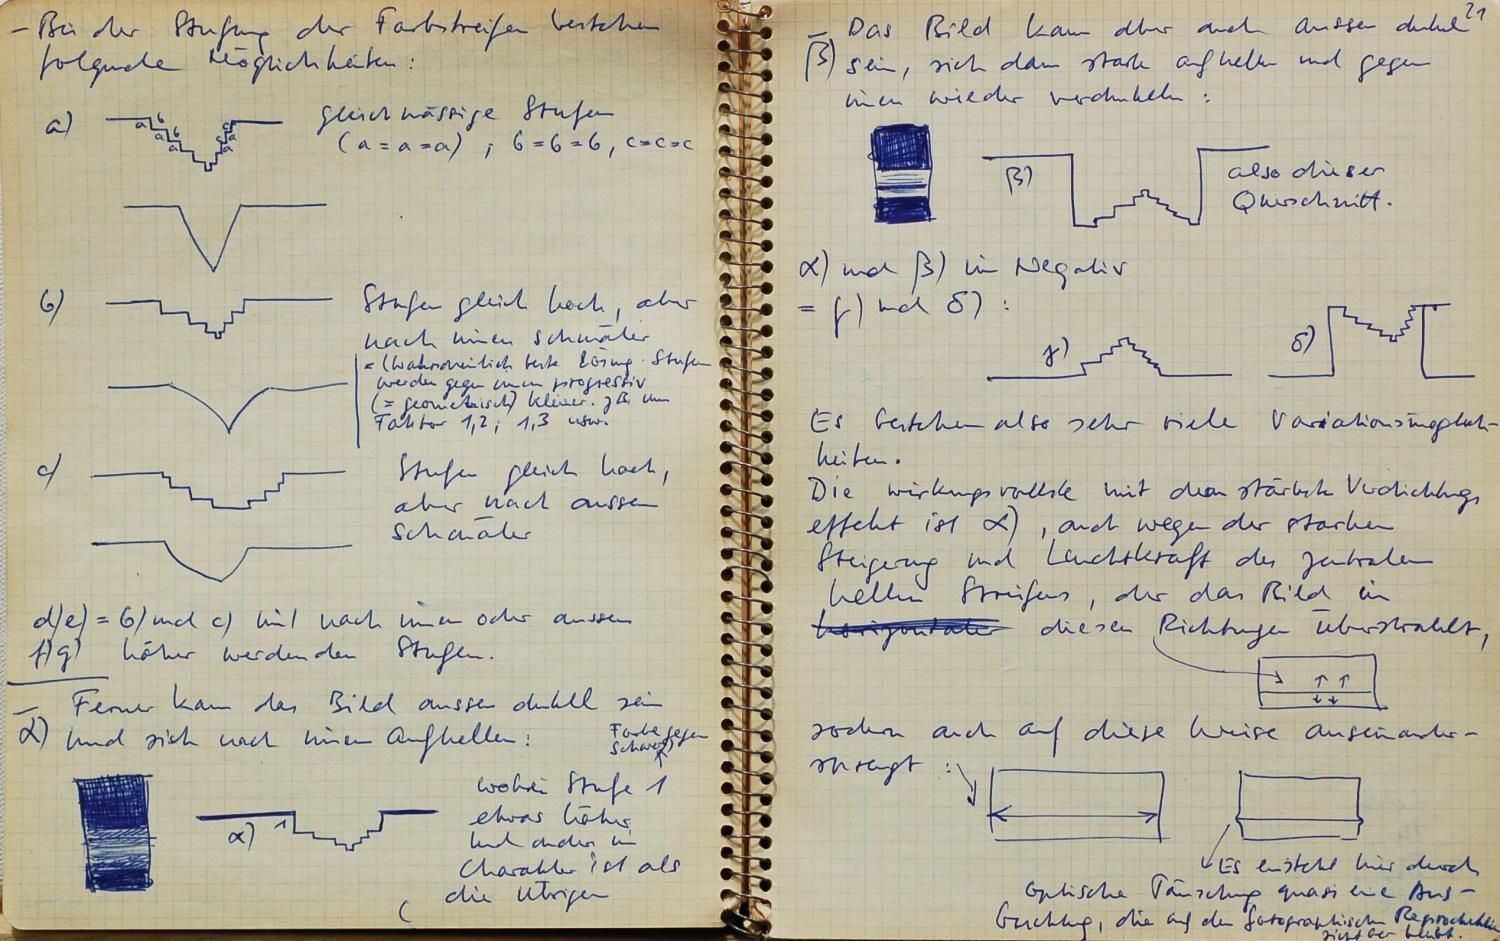 - Bei der Stufung der Farbstreifen bestehen
folgende Möglichkeiten:
a) gleichmässige Stufen
(a = a = a) ; b = b = b, c = c = c
a b a b a c a c a
b) Stufen gleich hoch, aber
nach innen schmäler
= (wahrscheinlich beste Lösung. Stufen
werden gegen innen progressiv
(= geometrisch) kleiner. zB. um
Faktor 1,2; 1,3 usw.
c) Stufen gleich hoch,
aber nach aussen
schmäler
d/e) = b) und c) mit nach innen oder aussen
f/g) höher werdenden Stufen.
- Ferner kann das Bild aussen dunkel sein
α) und sich nach innen aufhellen:
Farbe gegen
Schwarz
wobei Stufe 1
etwas höher
und anders im
Charakter ist als
die Übrigen
α) 1
21
- Das Bild kann aber auch aussen dunkel
β) sein, sich dann stark aufhellen und gegen
innen wieder verdunkeln:
β) also dieser
Querschnitt.
α) und β) im Negativ
= γ) und δ) :
γ) δ)
Es bestehen also sehr viele Variationsmöglich-
keiten.
Die wirkungsvollste mit dem stärksten Verdichtungs
effekt ist α), auch wegen der starken
Steigerung und Leuchtkraft des zentralen
hellen Streifens, der das Bild in
horizontaler diesen Richtungen überstrahlt,
sondern auch auf diese Weise auseinander-
sprengt :
Es entsteht hier durch
optische Täuschung quasi eine Aus-
buchtung, die auf den fotographischen Reproduktionen
sichtbar bleibt.